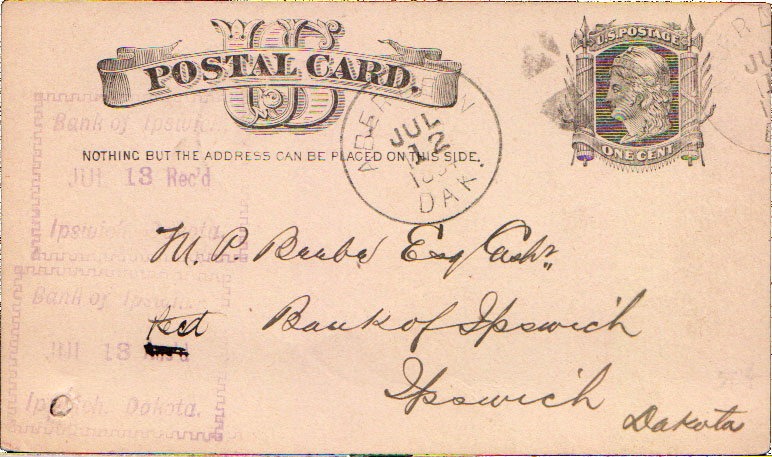 POSTAL CARD.
NOTHING BUT THE ADDRESS CAN BE PLACED ON THIS SIDE.
U.S. POSTAGE
ONE CENT
ABERDEEN
JUL
12
DAK.
JUL
Bank of Ipswich
JUL 13 Rec'd
Ipswich, Dakota.
Bank of Ipswich
JUL 13 Ans'd
Ipswich, Dakota.
M. P. Beebe Esq Cashr
Recd Bank of Ipswich
Ipswich
Dakota